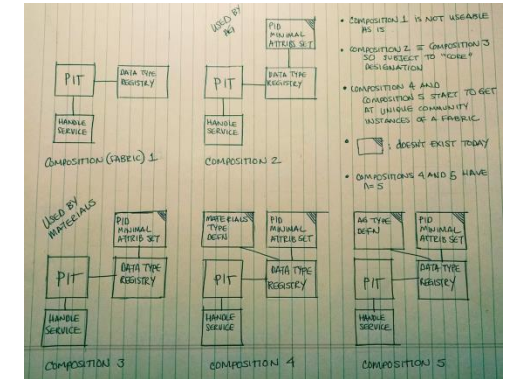 PIT
DATA TYPE
REGISTRY
HANDLE
SERVICE
COMPOSITION (FABRIC) 1
USED BY
PID
MINIMAL
ATTRIB SET
PIT
DATA TYPE
REGISTRY
HANDLE
SERVICE
COMPOSITION 2
• COMPOSITION 1 IS NOT USEABLE
AS IS
• COMPOSITION 2 = COMPOSITION 3
SO SUBJECT TO "CORE"
DESIGNATION
• COMPOSITION 4 AND
COMPOSITION 5 START TO GET
AT UNIQUE COMMUNITY
INSTANCES OF A FABRIC
• : DOESN'T EXIST TODAY
• COMPOSITIONS 4 AND 5 HAVE
n=5
USED BY
MATERIALS
PID
MINIMAL
ATTRIB SET
PIT
DATA TYPE
REGISTRY
HANDLE
SERVICE
COMPOSITION 3
MATERIALS
TYPE
DEFN
PID
MINIMAL
ATTRIB SET
PIT
DATA TYPE
REGISTRY
HANDLE
SERVICE
COMPOSITION 4
AG TYPE
DEFN
PID
MINIMAL
ATTRIB SET
PIT
DATA TYPE
REGISTRY
HANDLE
SERVICE
COMPOSITION 5